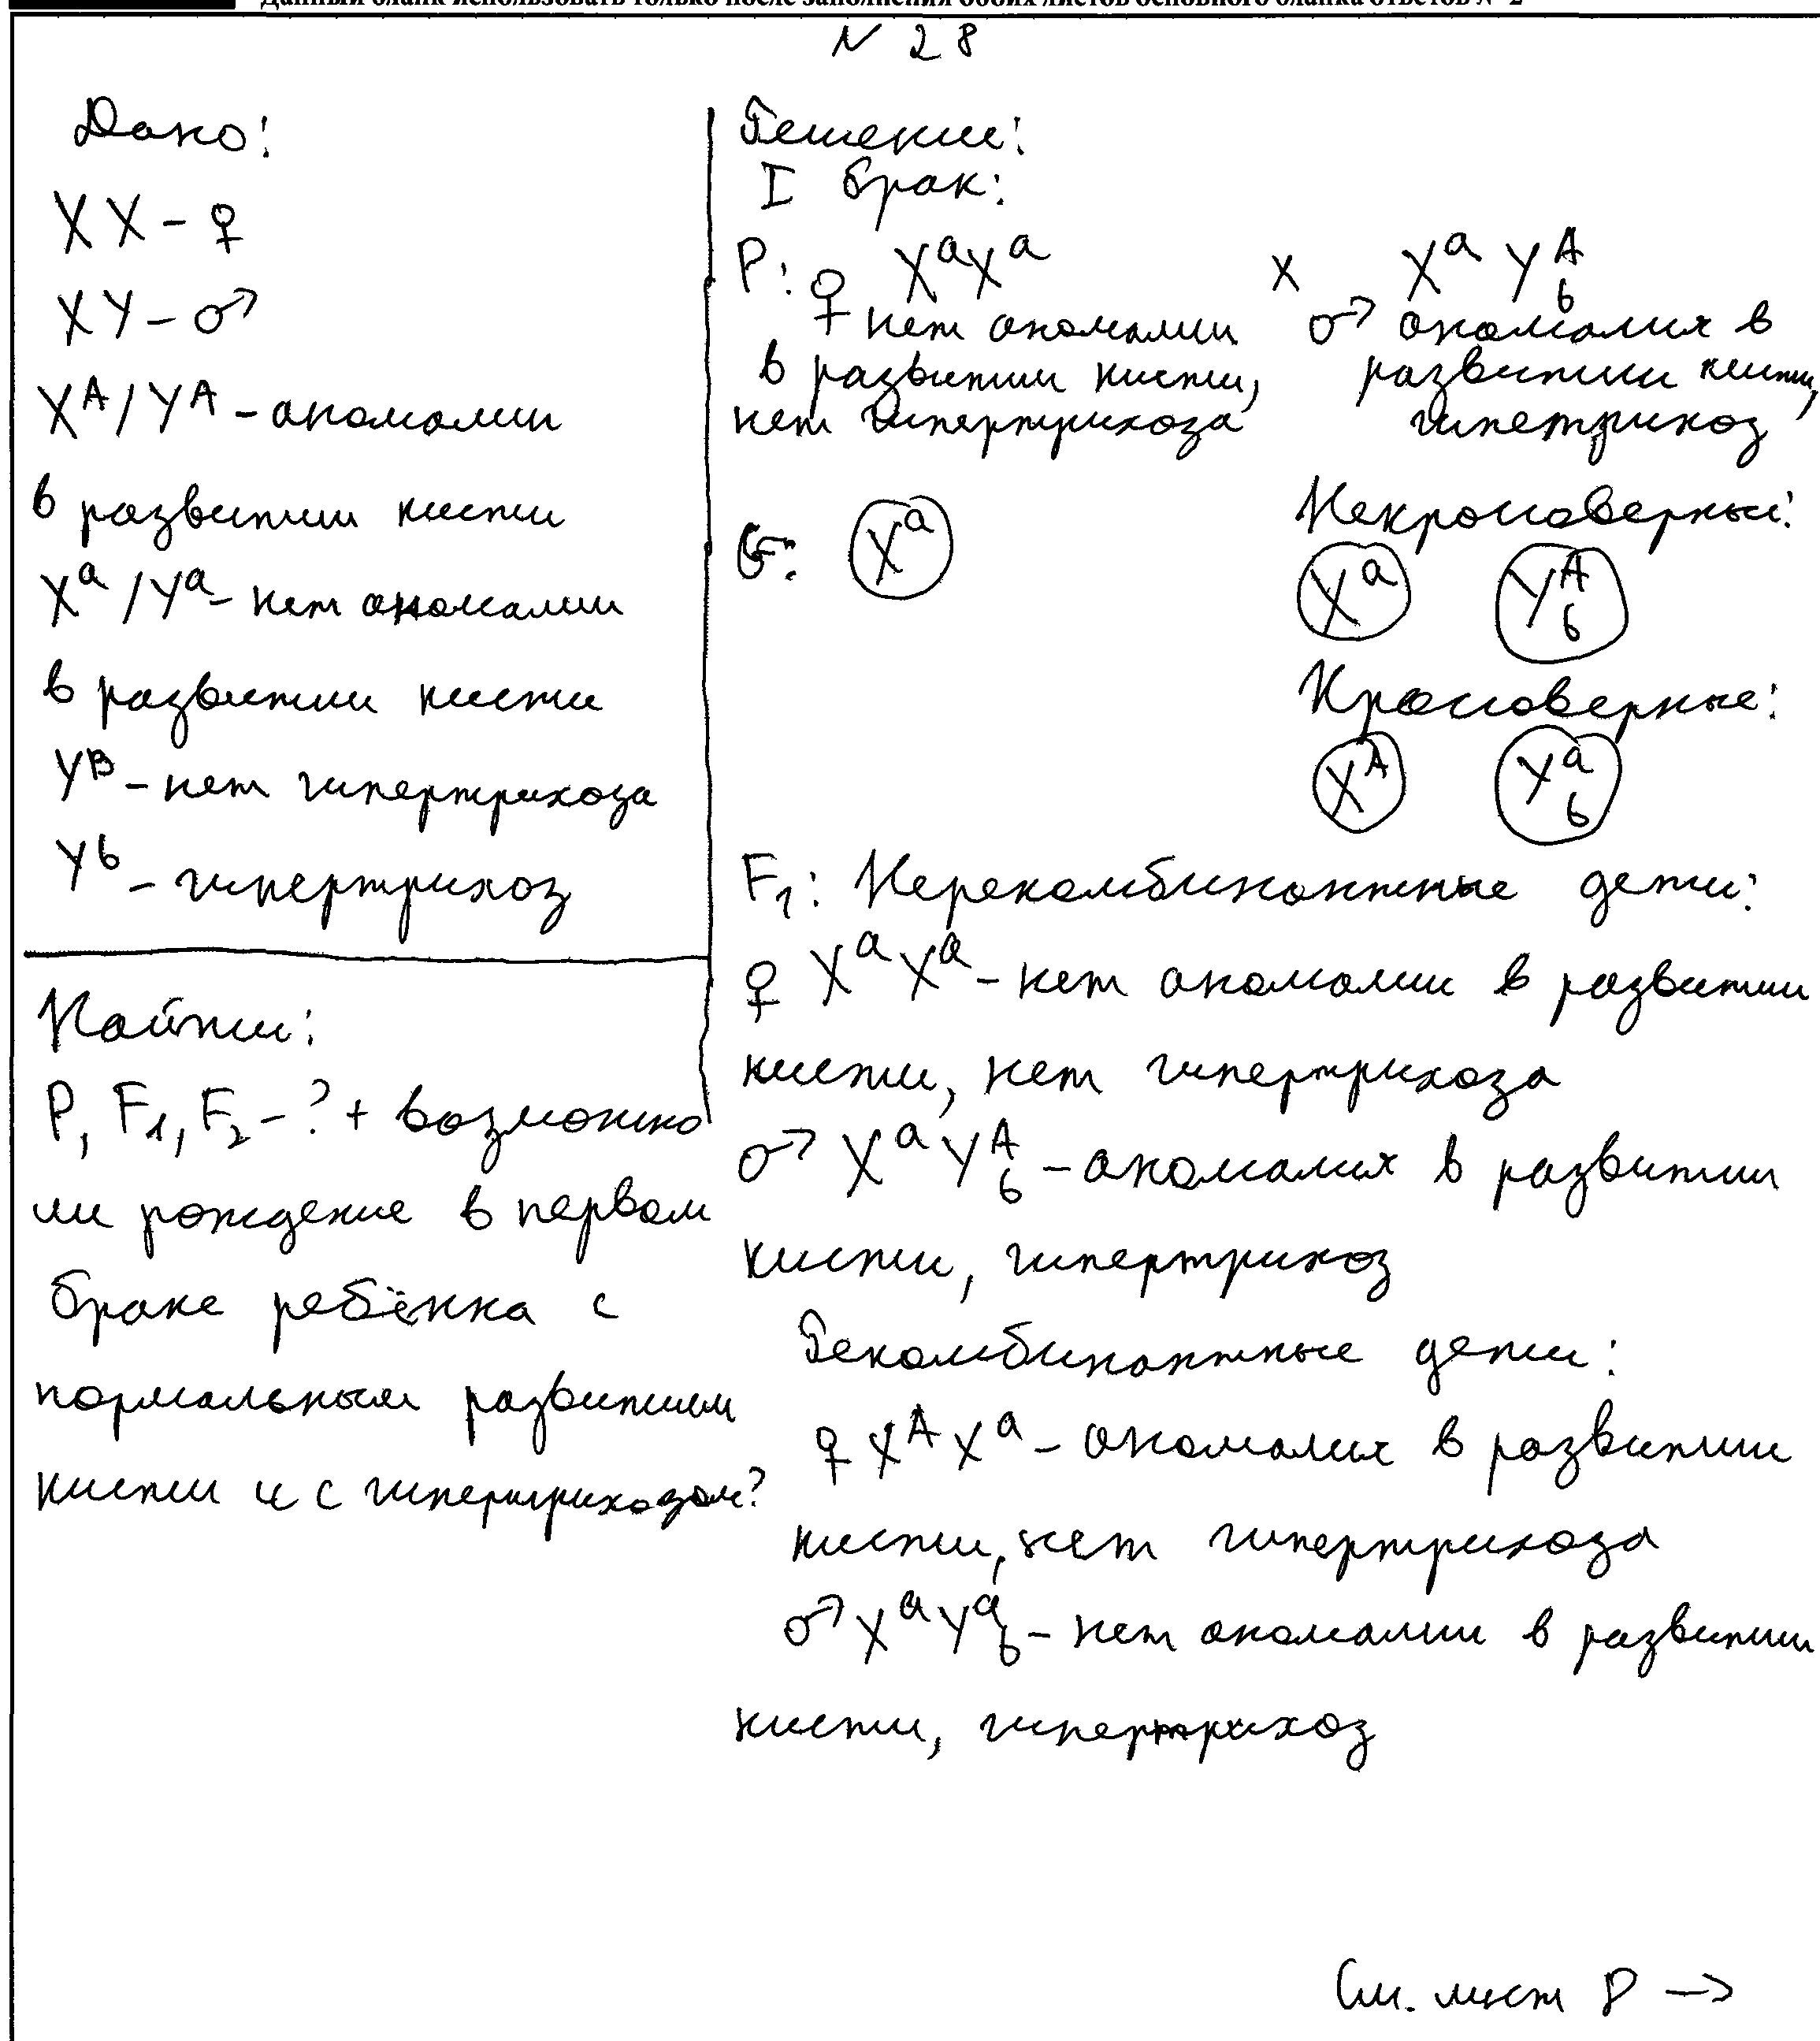 Данный бланк использовать только после заполнения обоих листов основного бланка ответов № 2
N 28
Дано:
XX - ♀
XY - ♂
X^A / Y^A - аномалии
в развитии кисти
X^a / Y^a - нет аномалии
в развитии кисти
Y^B - нет гипертрихоза
Y^b - гипертрихоз
Найти:
P, F₁, F₂ - ? + возможно
ли рождение в первом
браке ребёнка с
нормальным развитием
кисти и с гипертриходом?
Решение:
I брак:
P: ♀ X^a X^a x ♂ X^a Y^A_b
нет аномалии
в развитии кисти,
нет гипертрихоза
аномалия в
развитии кисти,
гипетрихоз
G: X^a
Некроссоверные:
X^a Y^A_b
Кроссоверные:
X^A Y^a_b
F₁: Нерекомбинантные дети:
♀ X^a X^a - нет аномалии в развитии
кисти, нет гипертрихоза
♂ X^a Y^A_b - аномалия в развитии
кисти, гипертрихоз
Рекомбинантные дети:
♀ X^A X^a - аномалия в развитии
кисти, нет гипертрихоза
♂ X^a Y^a_b - нет аномалии в развитии
кисти, гипертрихоз
См. лист 8 →